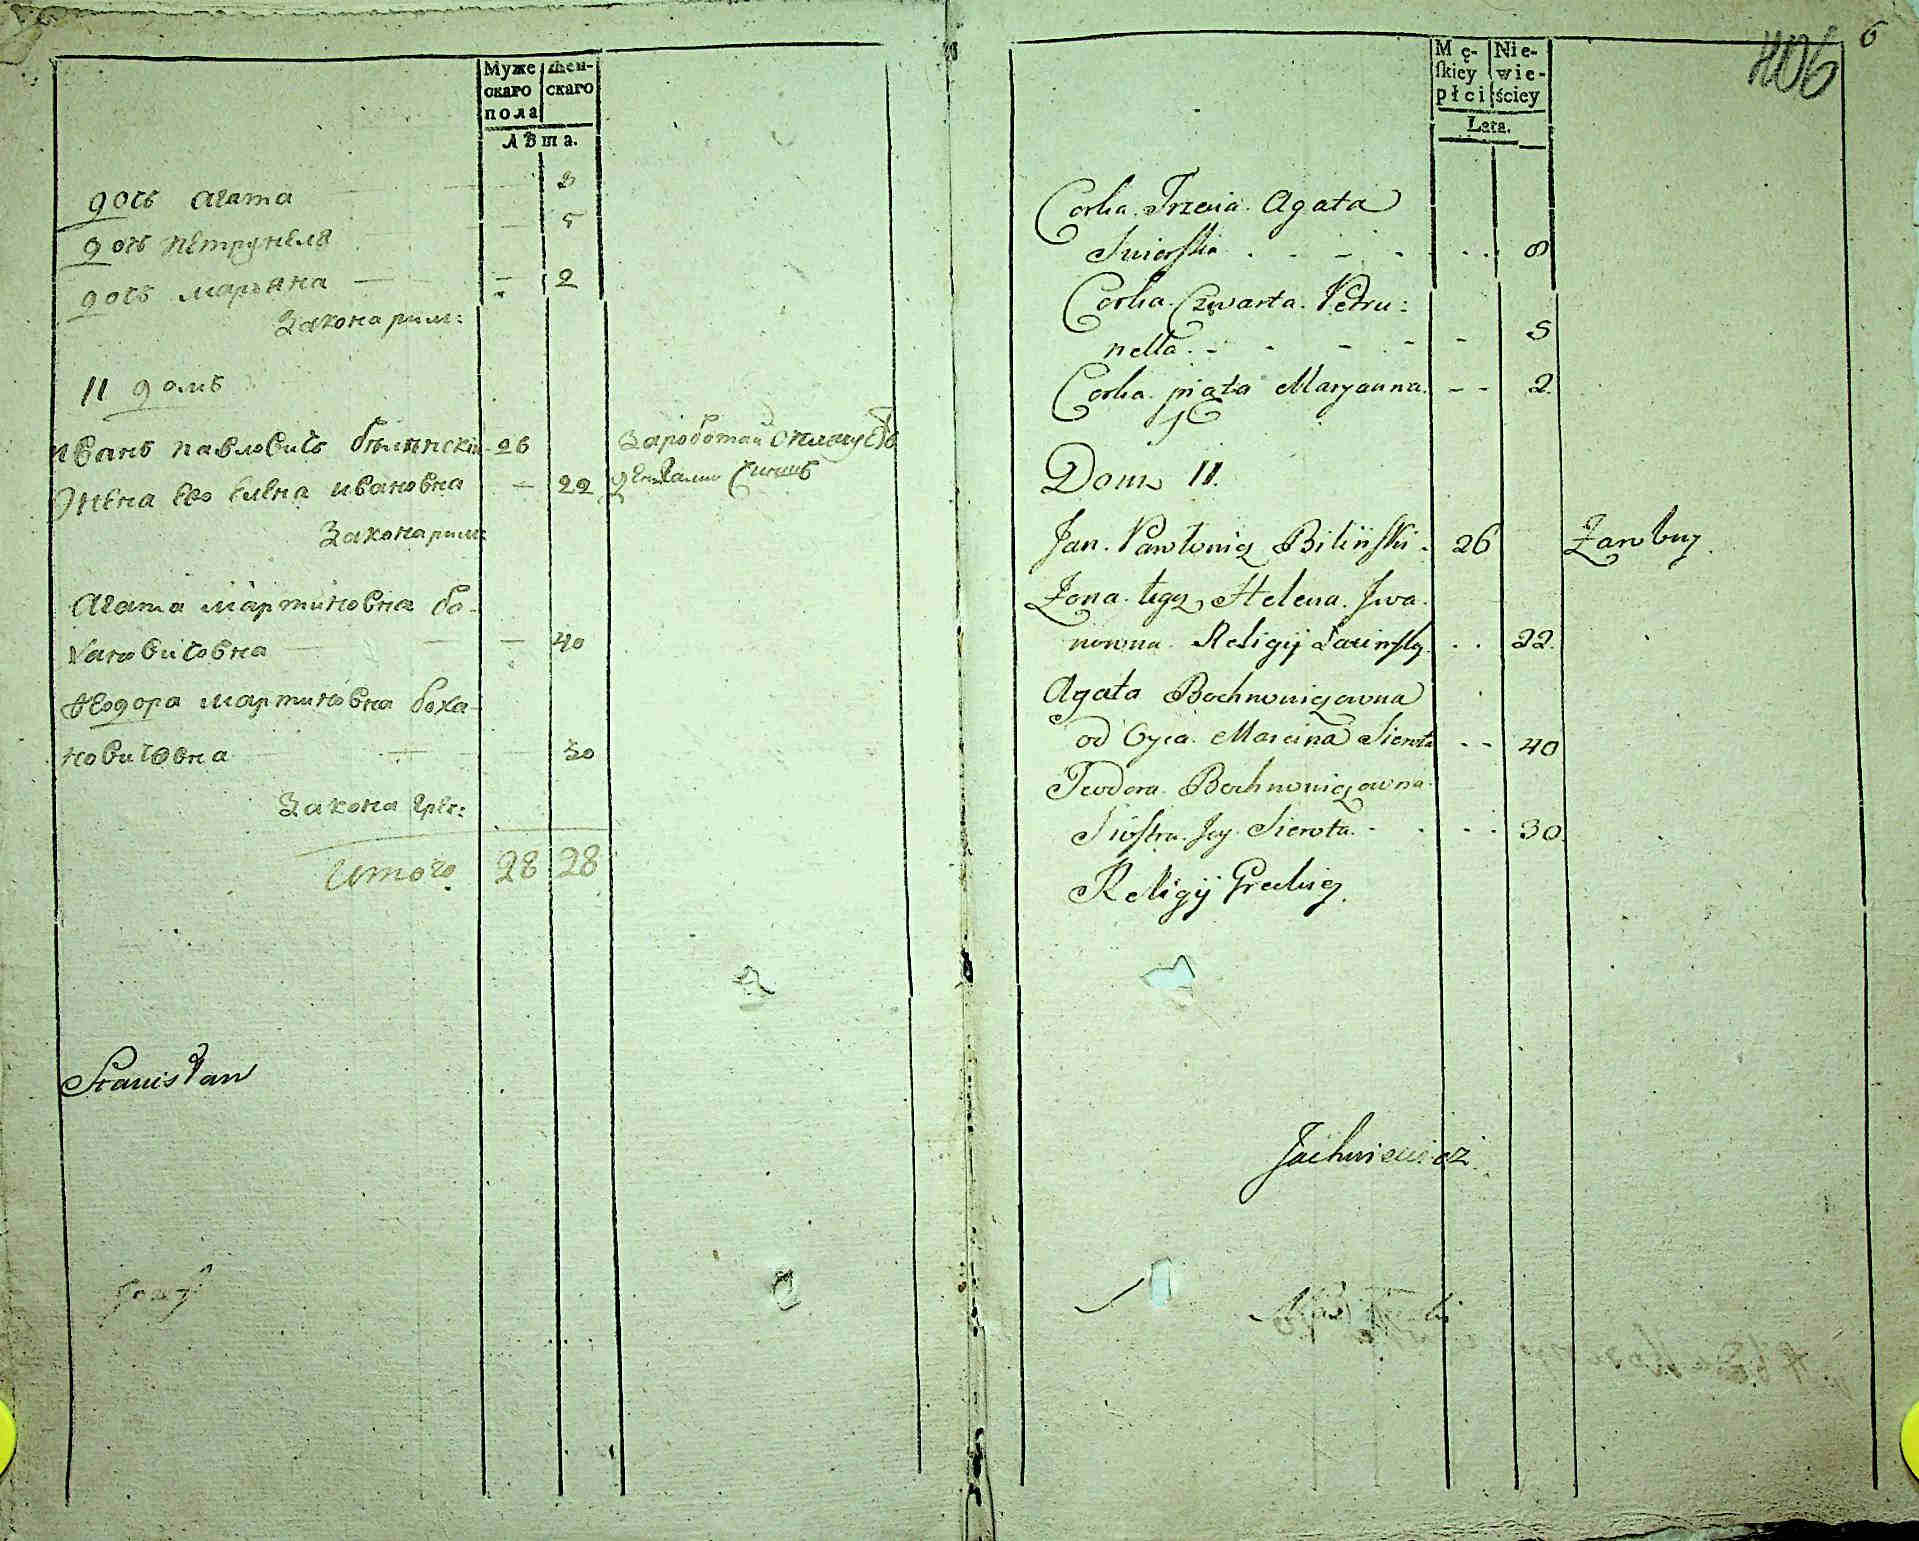 Муже
скаго
пола
Жен-
скаго
Лѣта.
дочь Агата — 8
дочь Петрунеля — 5
дочь Марьяна — — 2
Закона рим:
11 домъ
Иванъ Павловичъ Бѣлинскій 26
Жена его Елена Ивановна — 22
Закона рим:
Агата Мартиновна Бо-
хановичовна — 40
Ѳеодора Мартиновна Боха-
новичовна — 30
Закона Грек:
Итого 28 28
Stanisław
Józef
6
406
Mę-
skiey
płci
Nie-
wie-
ściey
Lata.
Corka Trzecia Agata
8
Corka Czwarta Petru:
nella - - - - 5
Corka piąta Maryanna - - 2
Dom 11.
Jan Pawłowicz Biliński 26
Żona tego Helena Iwa
nowna Religij Łacińsky . . 22.
Agata Bochnowiczowna
od Oyca Marcina Sierota - - 40
Teodora Bochnowiczowna
Siostra Jey Sierota - - 30
Religij Greckiey.
Jachniewicz